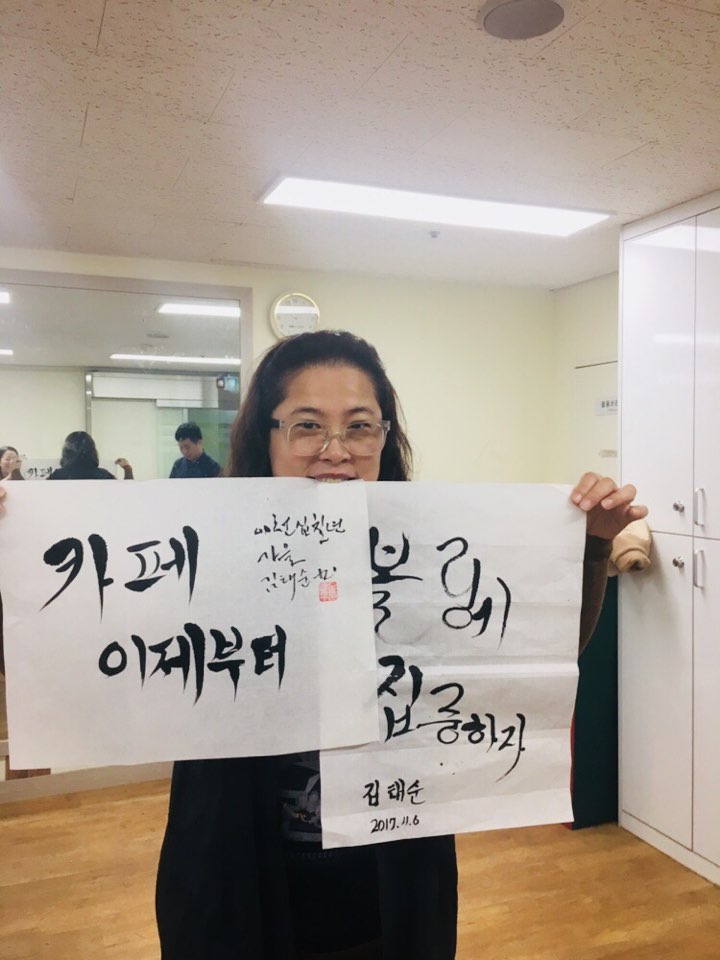 카페
이제부터
이천십칠년
가을
김태순
집중하자
김태순
2017.11.6
카페